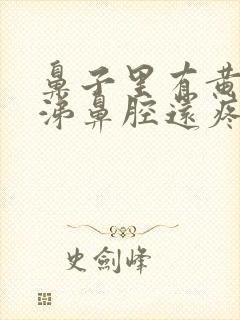 鼻子里有黄
涕鼻腔還疼
史劍峰